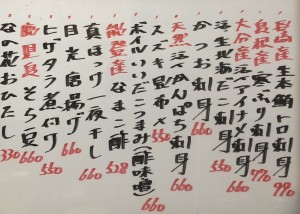 長崎産 生本鮪トロ刺身 990
島根産 寒ぶり刺身 770
大分産 活〆アイナメ刺身 550
活〆北海だこ刺身 550
かつお刺身 660
天然 活〆かんぱち刺身
スズキ昆布〆 550
ボイルいいだこつまみ(酢味噌) 660
能登産 なまこ酢 528
真ほっけ一夜干し 660
目光唐揚げ 660
ヒゲダラ煮付け 550
そら豆 660
なの花おひたし 330